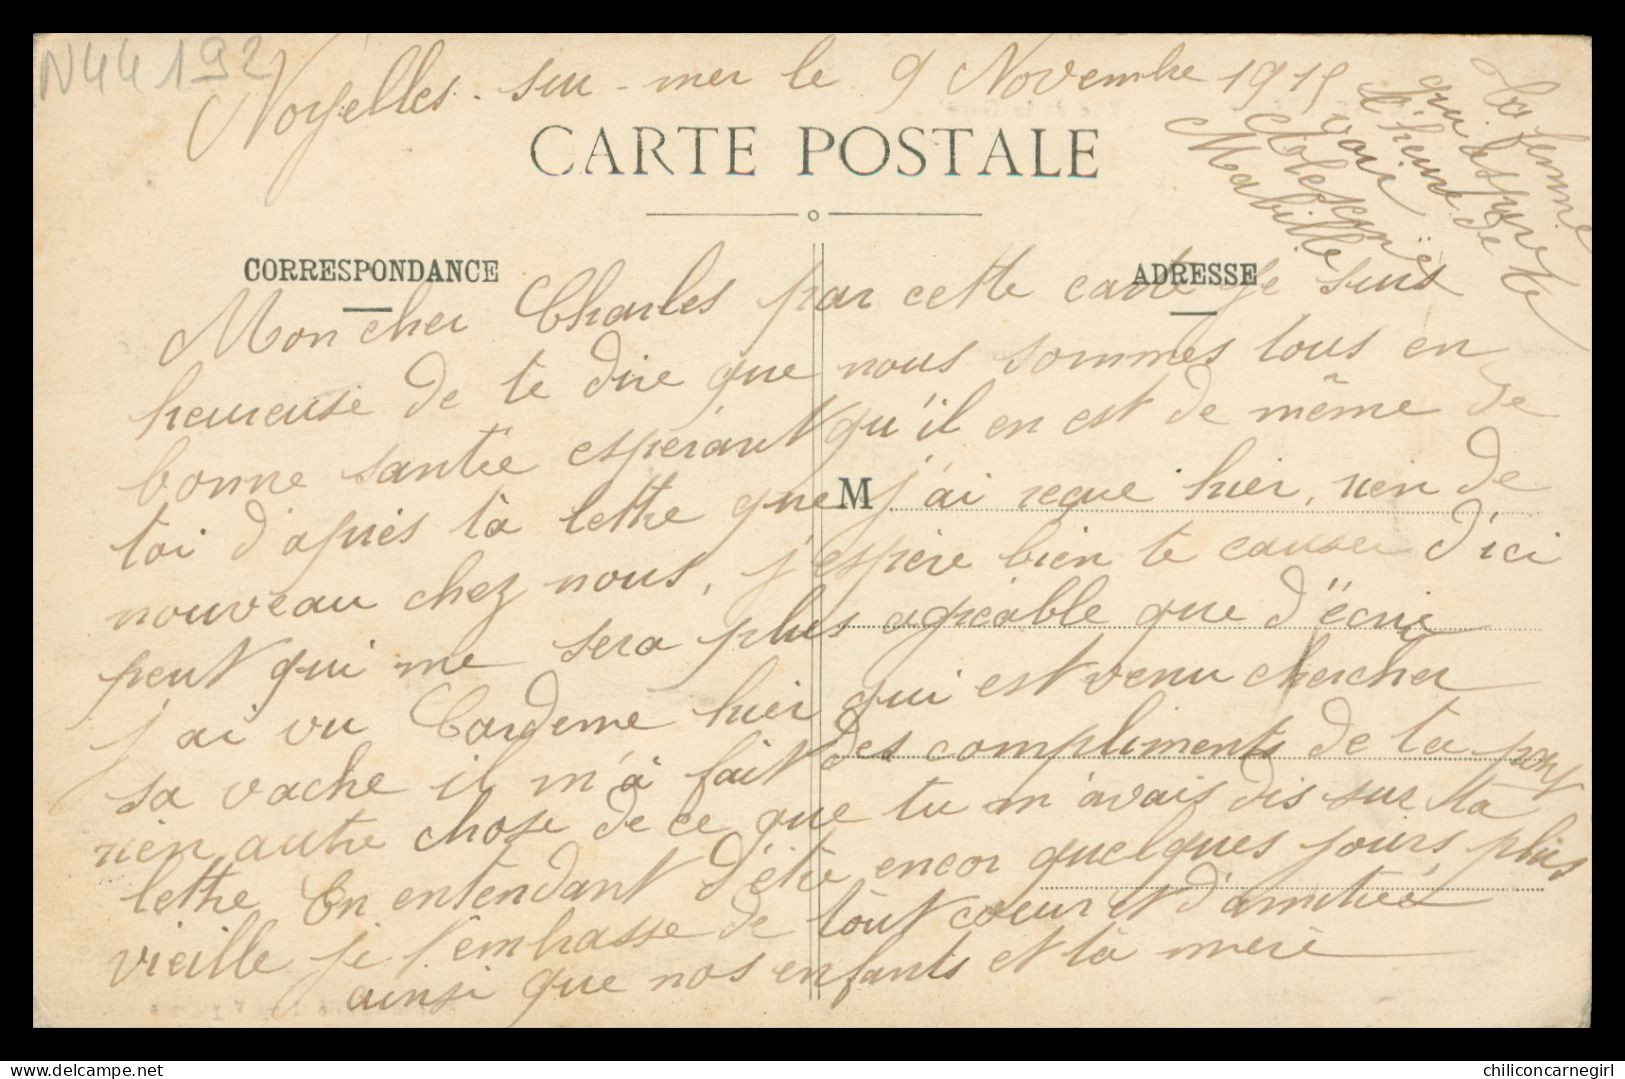 N44192
Noyelles-sur-mer le 9 Novembre 1915
CARTE POSTALE
CORRESPONDANCE
ADRESSE
Mon cher Charles par cette carte je suis
heureuse de te dire que nous sommes tous en
bonne santée espérant qu'il en est de même de
toi d'après ta lettre que j'ai reçue hier, rien de
M
nouveau chez nous, j'espère bien te causer d'ici
peut qui me sera plus agréable que d'écrie
j'ai vu hier qui est venu chercher
sa vache il m'à fait des compliments de ta part
rien autre chose de ce que tu m'avais dis sur ta
lettre En entendant d'étre encor quelques jours plus
vieille je t'embrasse de tout coeur et d'amitiéé
ainsi que nos enfants et ta mère
Ta femme
qui aspire te
voir
Mabille
chiliconcarnegirl - delcampe.net